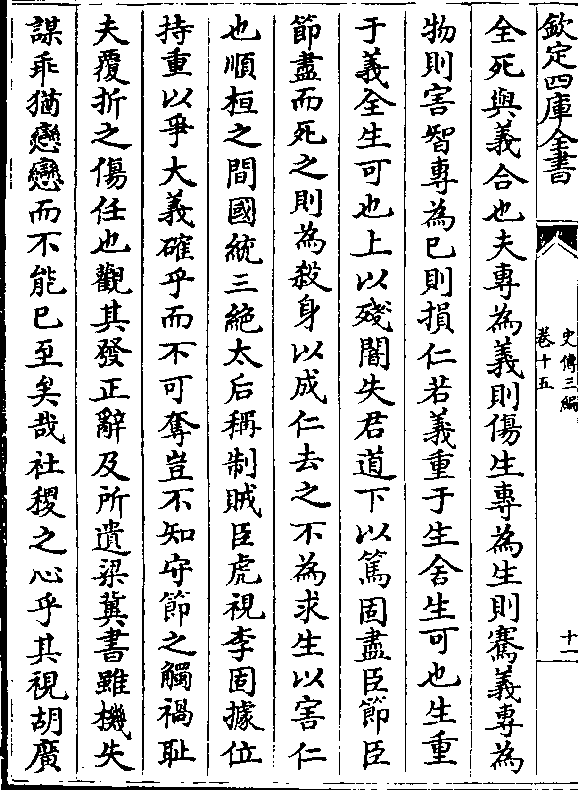 欽定四庫全書
史傳三編
卷十五
十一
全死與義合也夫專為義則傷生專為生則騫義專為
物則害智專為已則損仁若義重于生舍生可也生重
于義全生可也上以殘闇失君道下以篤固盡臣節臣
節盡而死之則為殺身以成仁去之不為求生以害仁
也順桓之間國統三絶太后稱制賊臣虎視李固據位
持重以爭大義確乎而不可奪豈不知守節之觸禍恥
夫覆折之傷任也觀其發正辭及所遺梁冀書雖機失
謀乖猶戀戀而不能已至矣哉社稷之心乎其視胡廣